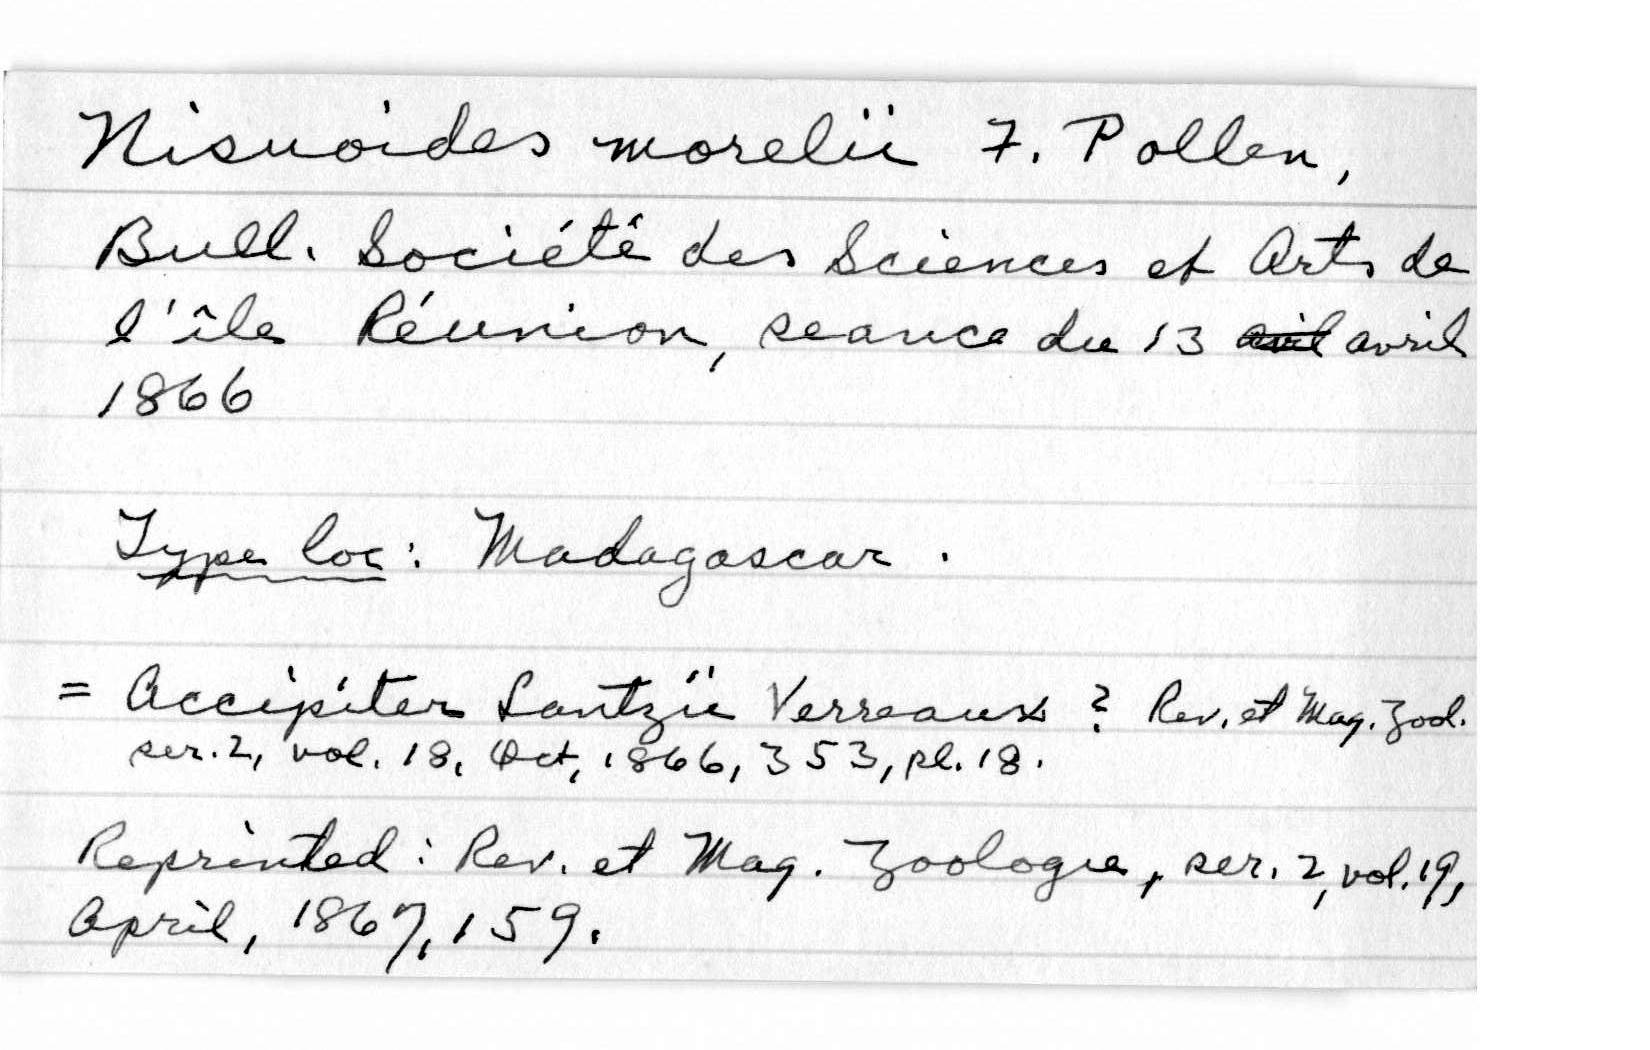 Nisuoides morelii F. Pollen,
Bull. Société des Sciences et Arts de
l'île Réunion, seance du 13 avril
1866
Type loc: Madagascar.
= Accipiter Lantzii Verreaux? Rev. et Mag. Zool.
ser. 2, vol. 18, Oct, 1866, 353, pl. 18.
Reprinted: Rev. et Mag. Zoologie, ser. 2, vol. 19,
April, 1867, 159.